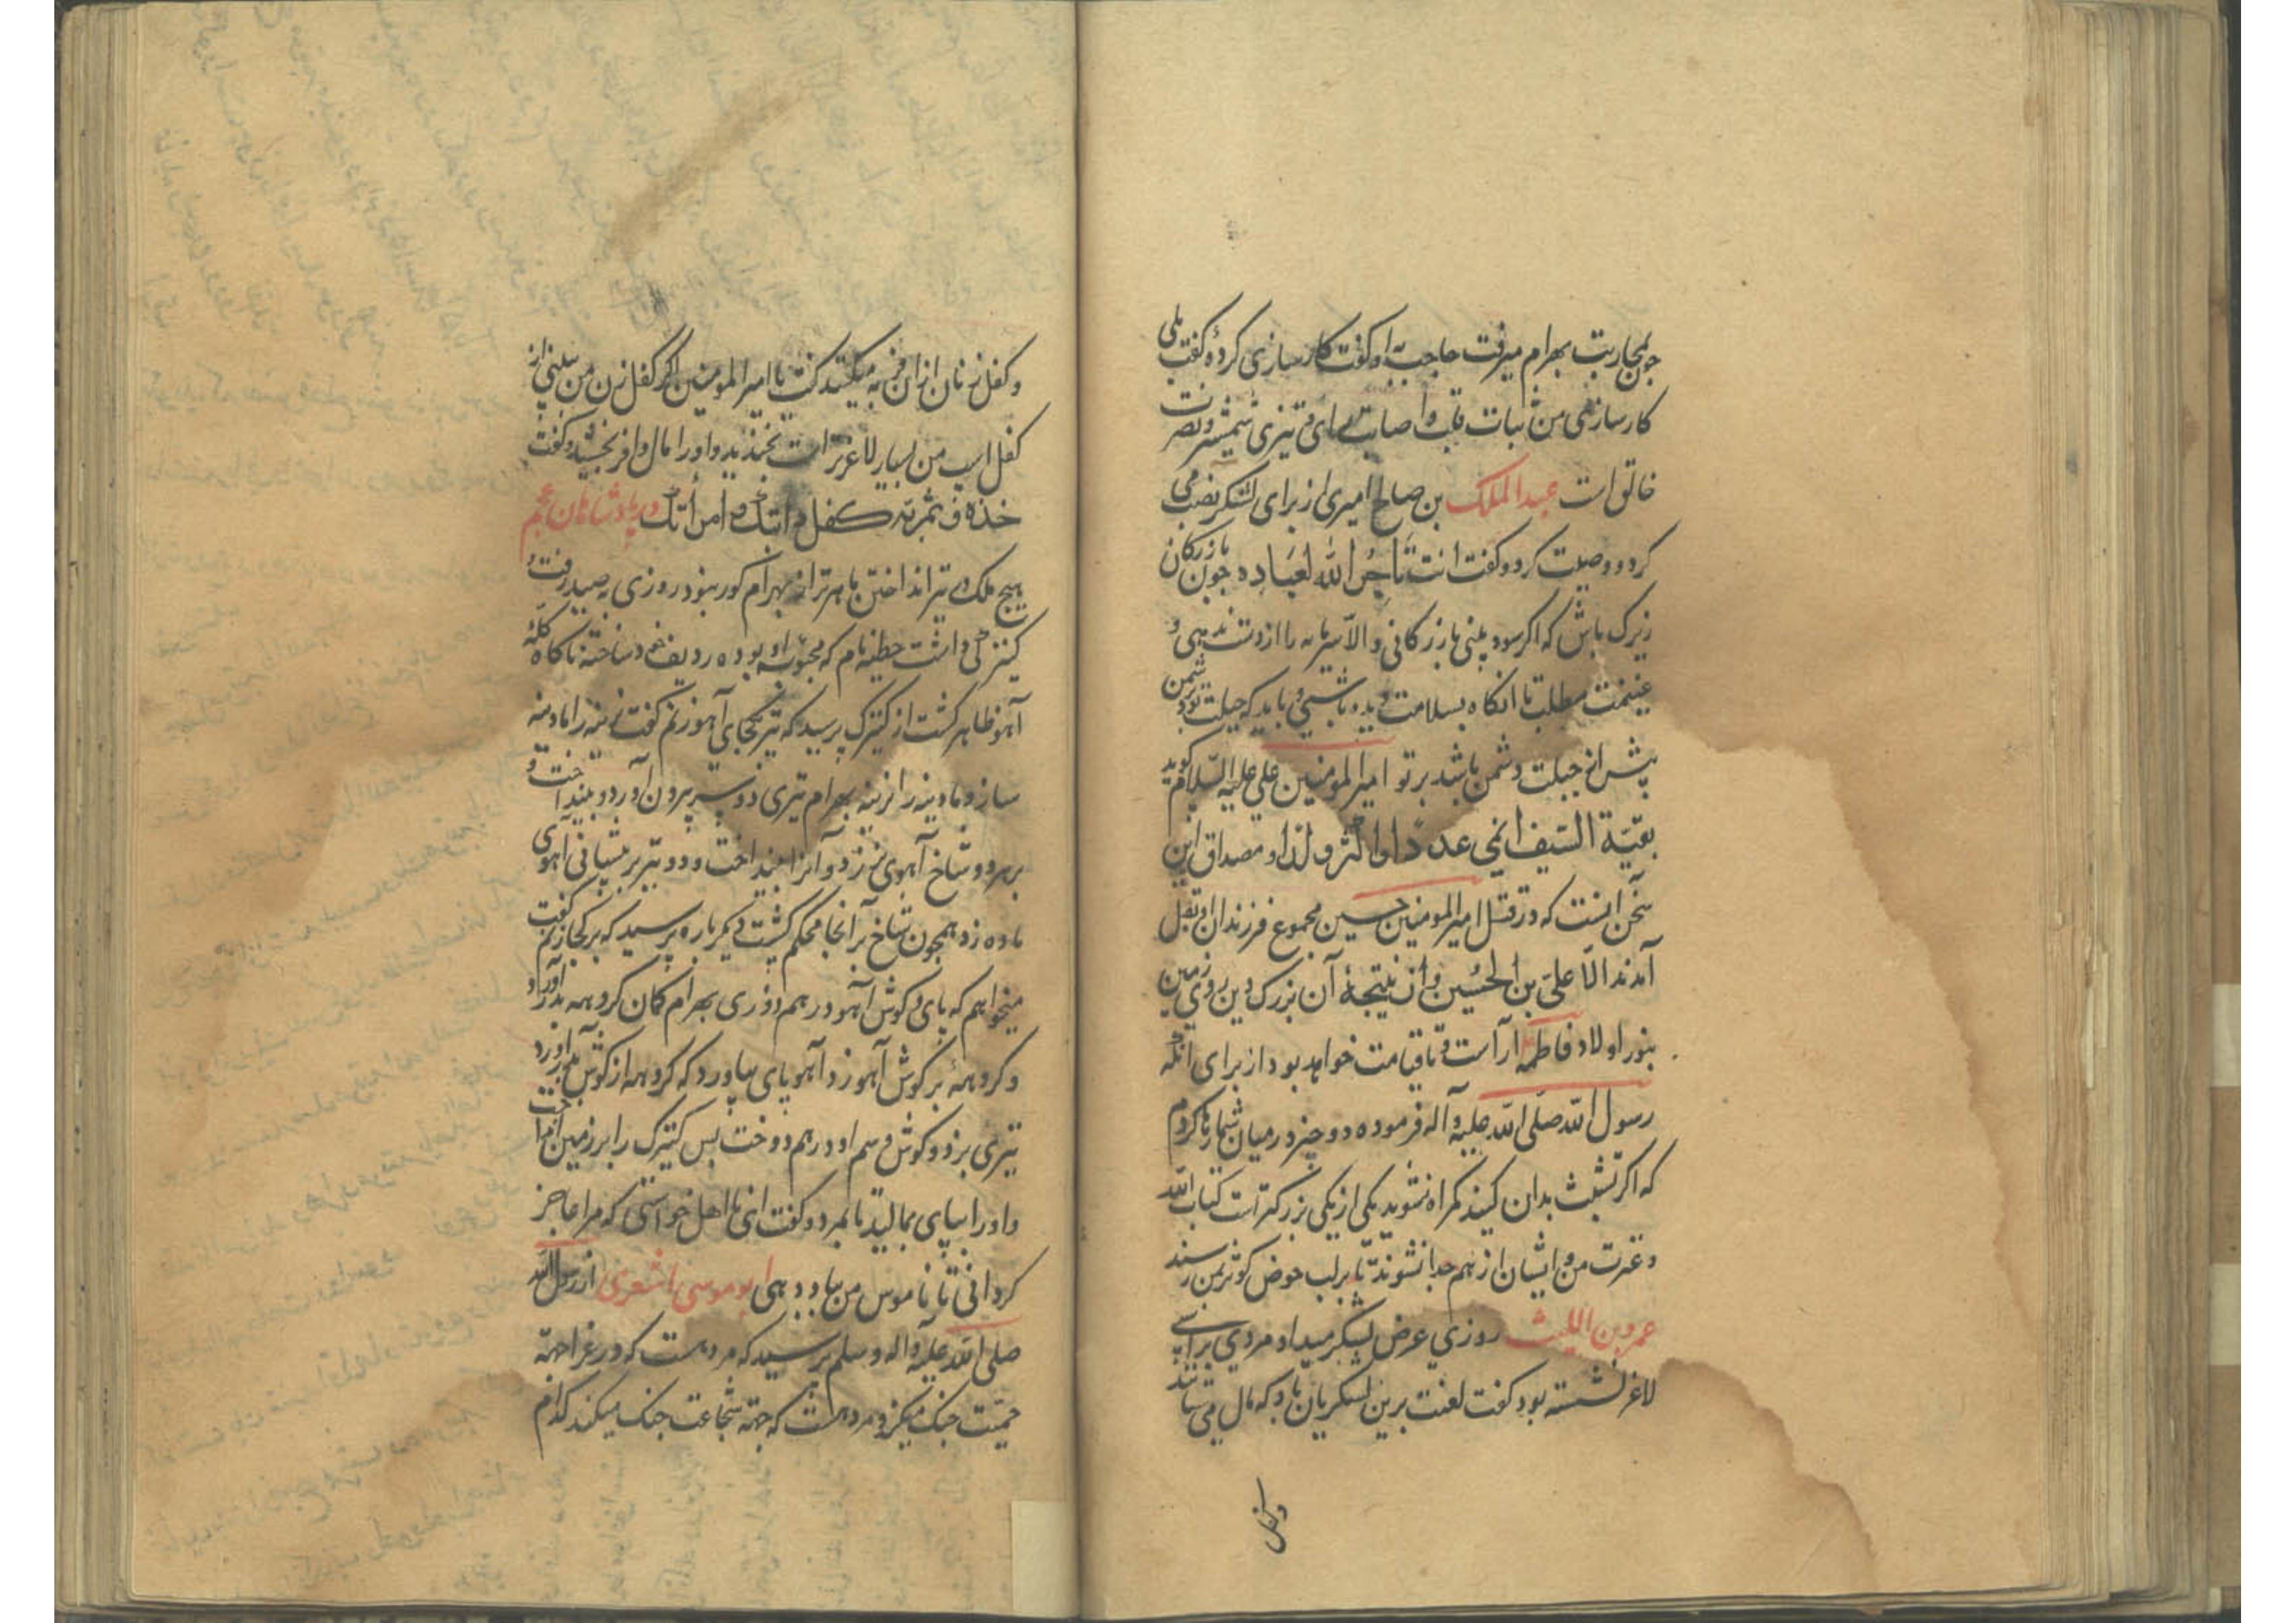 چون بمحاربت بهرام میرفت حاجب به او گفت کارسازی کردهٔ گفت بلی
کارسازی من ثبات قلب و اصابت رای و تیزی شمشیر و نصرت
خالق است عبد الملک بن صالح امیری از برای لشکر نصب می
کرد و وصیت کرد و گفت انت تاجر الله لعباده چون بازرکان
زیرک باش که اکر سود بینی بازرکانی و الا سرمایه را از دست ندهی و
غنیمت مطلب تا انکاه بسلامت باشی و باید که حیلت تو بر دشمن
بیش از حیلت دشمن باشد بر تو امیر المومنین علی علیه السلام کوید
بقیّة السّیف انمی عددًا و اکثر ولدًا و مصداق این
سخن اینست که در قتل امیر المومنین حسین مجموع فرزندان او بقتل
آمدند الّا علی بن الحُسین و از نتیجهٔ آن بزرک دین روی زمین
بنور اولاد فاطمه آراست و تا قیامت خواهد بود از برای انکه
رسول الله صلّی الله علیه و آله فرموده دو چیز در میان شما رها کردم
که اکر تشبث بدان کنید کمراه نشوید یکی از یکی بزرکتر است کتاب الله
و عترت من و ایشان از هم جدا نشوند تا بر لب حوض کوثر بمن رسند
عمرو بن اللیث روزی عرض لشکر میداد مردی بر اسپی
لاغر نشسته بود گفت لعنت برین لشکریان باد که مال می ستانند
و کفل
و کفل زنان از آن فربه میکنند گفت یا امیر المومنین اکر کفل زن من بینی از
کفل اسب من بسیار لاغرتر است بخندید و او را مال وافر بخشید و گفت
خذه و ثمر به کفل دابتک و امرأتک در پادشاهان عجم
هیچ ملک در تیر انداختن ماهرتر از بهرام کور نبود روزی به صید رفت و
کنیزکی داشت حطنه نام که محبوبه او بوده ردیف خود ساخته ناکاه کلهٔ
آهو ظاهر کشت از کنیزک پرسید که تیر بکجای آهو زنم گفت نرینه را مادینه
ساز و مادینه را نرینه بهرام تیری دو سر بیرون آورد و بینداخت و
بر هر دو شاخ آهوی نر زد و آنرا بینداخت و دو تیر بر پیشانی آهوی
ماده زد همچون شاخ بر آنجا محکم کشت دیکر باره پرسید که بر کجا زنم گفت
میخواهم که پای و کوش آهو در هم دوزی بهرام کمان کروهه بدر آورد
و کروههٔ بر کوش آهو زد آهو پای بیاورد که کروهه از کوش بدر آورد
تیری بزد و کوش و سم او در هم دوخت پس کنیزک را بر زمین انداخت
و او را بپای بمالید تا بمرد و گفت ای نا اهل خواستی که مرا عاجز
کردانی تا ناموس من بباد دهی ابو موسی اشعری از رسول الله
صلی الله علیه و اله و سلم پرسید که مرد هست که در غزا جهة
حمیّت جنک میکند و مرد هست که جهة شجاعت جنک میکند کدام